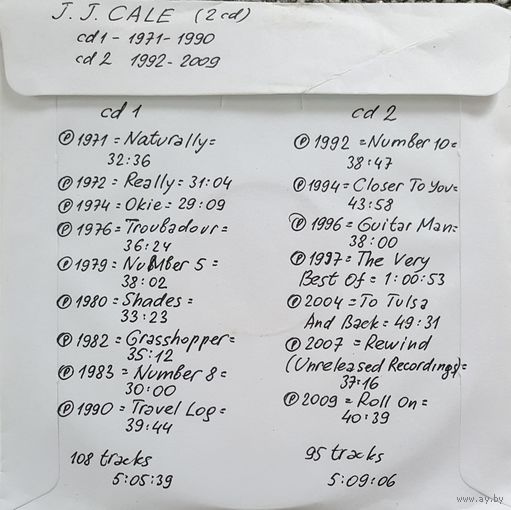 J. J. CALE (2cd)
cd1 - 1971 - 1990
cd2 1992 - 2009
cd 1
Ⓟ 1971 = Naturally =
32:36
Ⓟ 1972 = Really = 31:04
Ⓟ 1974 = Okie = 29:09
Ⓟ 1976 = Troubadour =
36:24
Ⓟ 1979 = Number 5 =
38:02
Ⓟ 1980 = Shades =
33:23
Ⓟ 1982 = Grasshopper =
35:12
Ⓟ 1983 = Number 8 =
30:00
Ⓟ 1990 = Travel Log =
39:44
108 tracks
5:05:39
cd 2
Ⓟ 1992 = Number 10 =
38:47
Ⓟ 1994 = Closer To You =
43:58
Ⓟ 1996 = Guitar Man =
38:00
Ⓟ 1997 = The Very
Best Of = 1:00:53
Ⓟ 2004 = To Tulsa
And Back = 49:31
Ⓟ 2007 = Rewind
(Unreleased Recordings) =
37:16
Ⓟ 2009 = Roll On =
40:39
95 tracks
5:09:06
www.ay.by